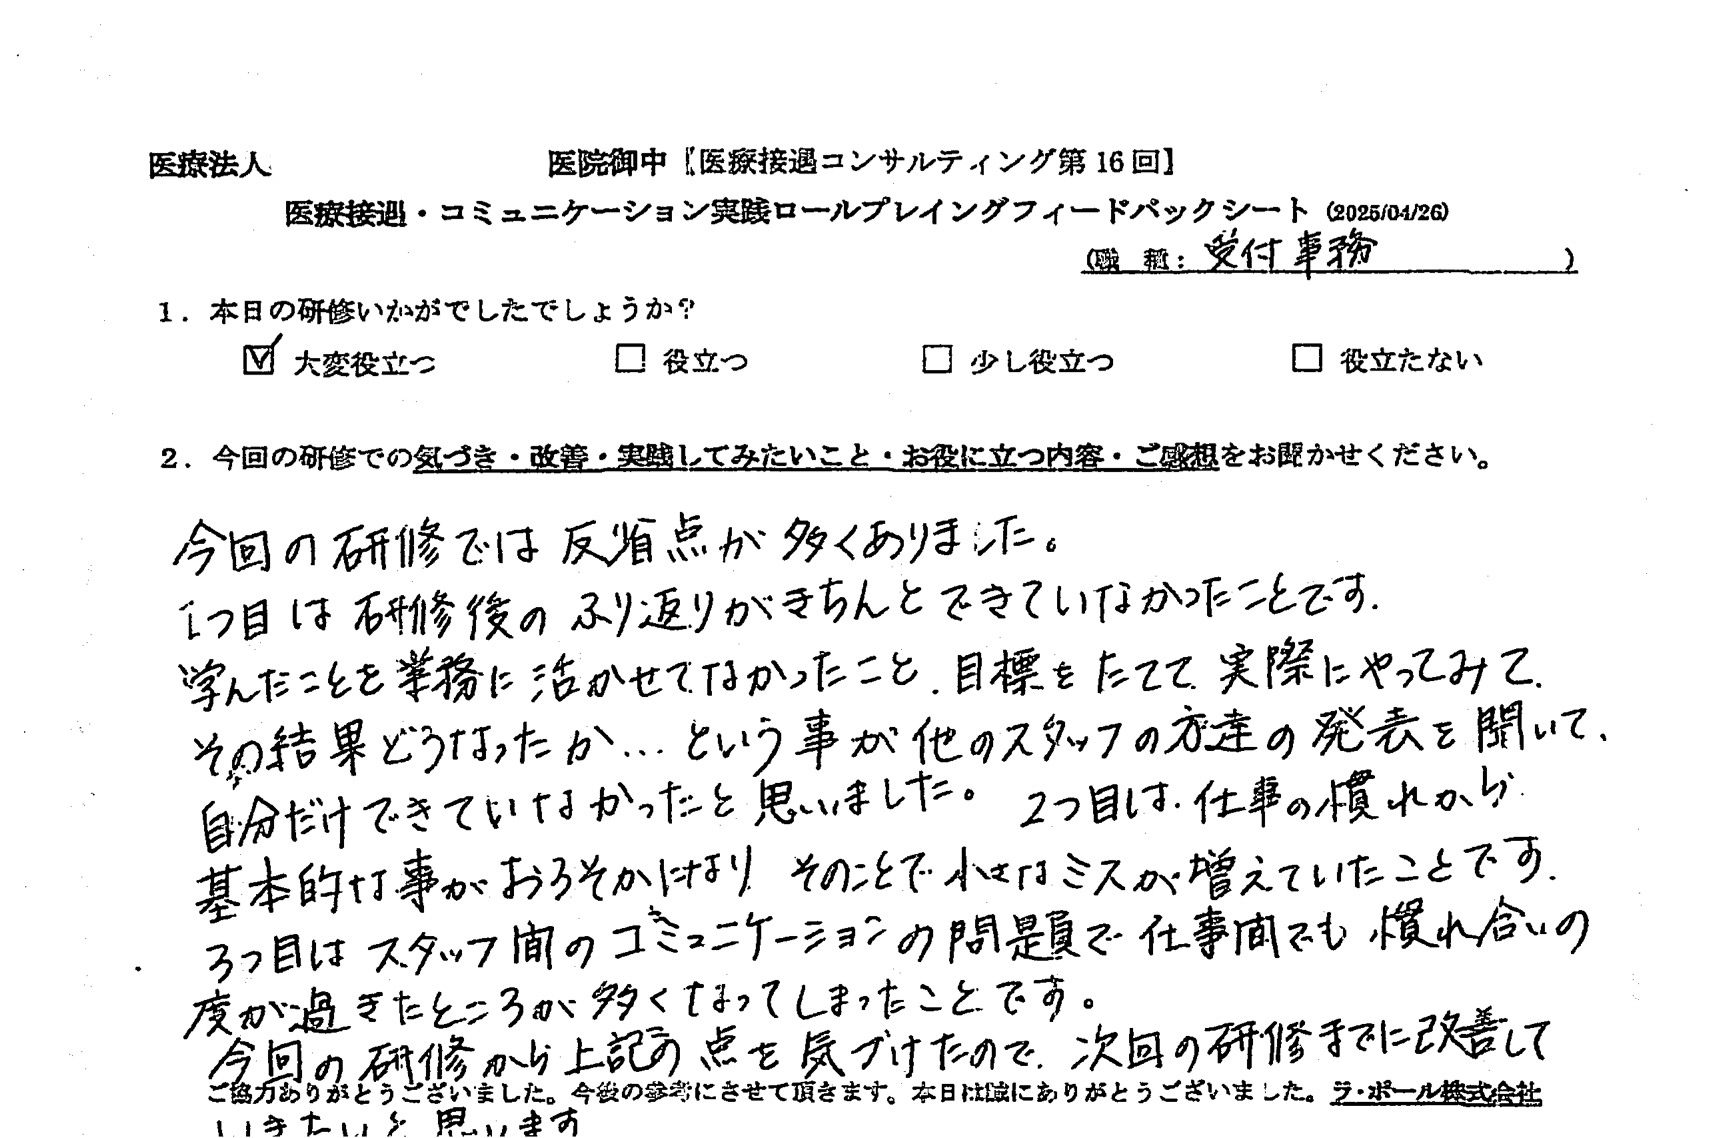 医療法人 医院御中【医療接遇コンサルティング第16回】
医療接遇・コミュニケーション実践ロールプレイングフィードバックシート (2025/04/26)
(職 種: 受付事務 )
1. 本日の研修いかがでしたでしょうか?
☑ 大変役立つ □ 役立つ □ 少し役立つ □ 役立たない
2. 今回の研修での気づき・改善・実践してみたいこと・お役に立つ内容・ご感想をお聞かせください。
今回の研修では反省点が多くありました。
1つ目は研修後のふり返りがきちんとできていなかったことです.
学んだことを業務に活かせてなかったこと、目標をたてて実際にやってみて、
その結果どうなったか…という事が他のスタッフの方達の発表を聞いて、
自分だけできていなかったと思いました。 2つ目は、仕事の慣れから
基本的な事がおろそかになり そのことで小さなミスが増えていたことです.
3つ目はスタッフ間のコミュニケーションの問題で仕事間でも慣れ合いの
度が過ぎたところが多くなってしまったことです。
今回の研修から上記の点を気づけたので、次回の研修までに改善して
ご協力ありがとうございました。今後の参考にさせて頂きます。本日は誠にありがとうございました。ラ・ポール株式会社
いきたいと思います